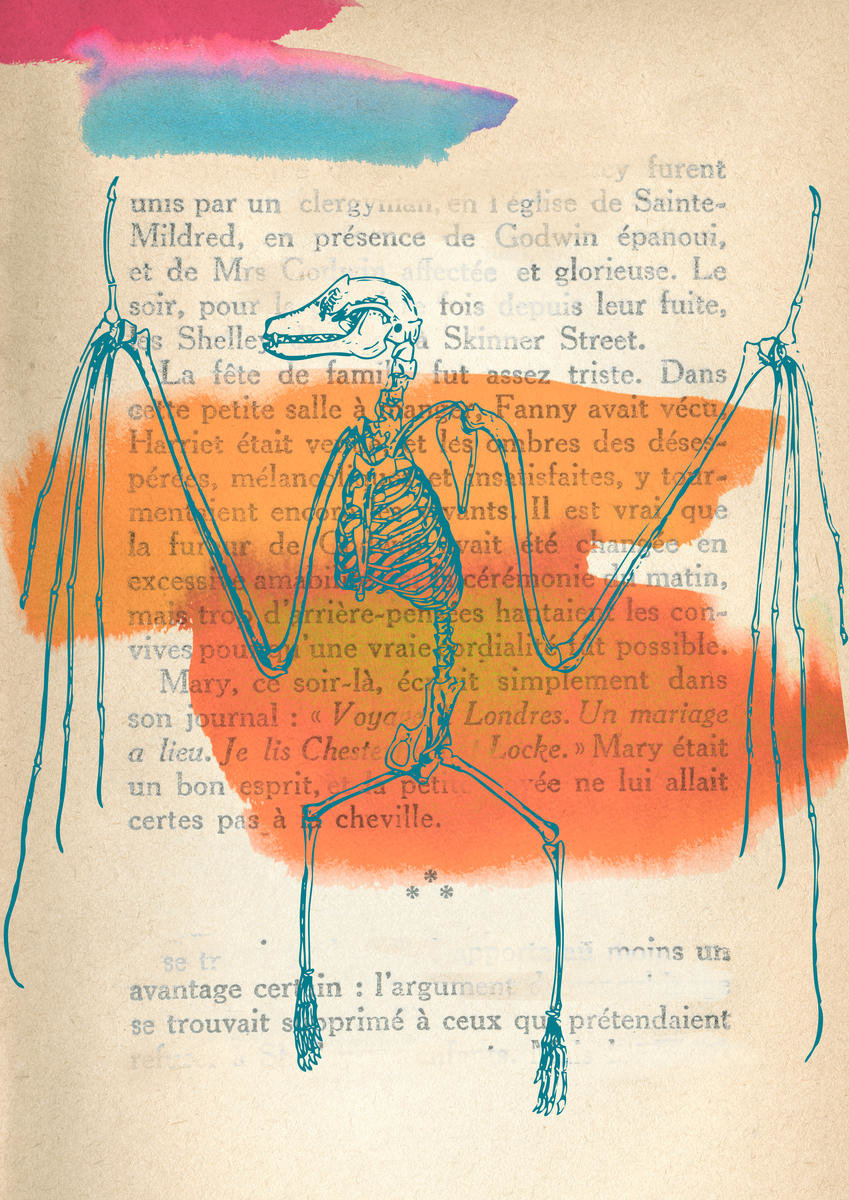 furent
unis par un clergyman, en l'église de Sainte-
Mildred, en présence de Godwin épanoui,
et de Mrs Godwin affectée et glorieuse. Le
soir, pour la fois depuis leur fuite,
les Shelley à Skinner Street.
La fête de famille fut assez triste. Dans
cette petite salle à manger, Fanny avait vécu,
Harriet était venue et les ombres des déses-
pérées, mélancoliques et insatisfaites, y tour-
mentaient encore les vivants. Il est vrai que
la fureur de Godwin avait été changée en
excessive amabilité la cérémonie du matin,
mais trop d'arrière-pensées hantaient les con-
vives pour qu'une vraie cordialité fût possible.
Mary, ce soir-là, écrivit simplement dans
son journal : « Voyage Londres. Un mariage
a lieu. Je lis Chesterfield et Locke. » Mary était
un bon esprit, et la petite ne lui allait
certes pas à la cheville.
***
se tr apporta au moins un
avantage certain : l'argument
se trouvait supprimé à ceux qui prétendaient